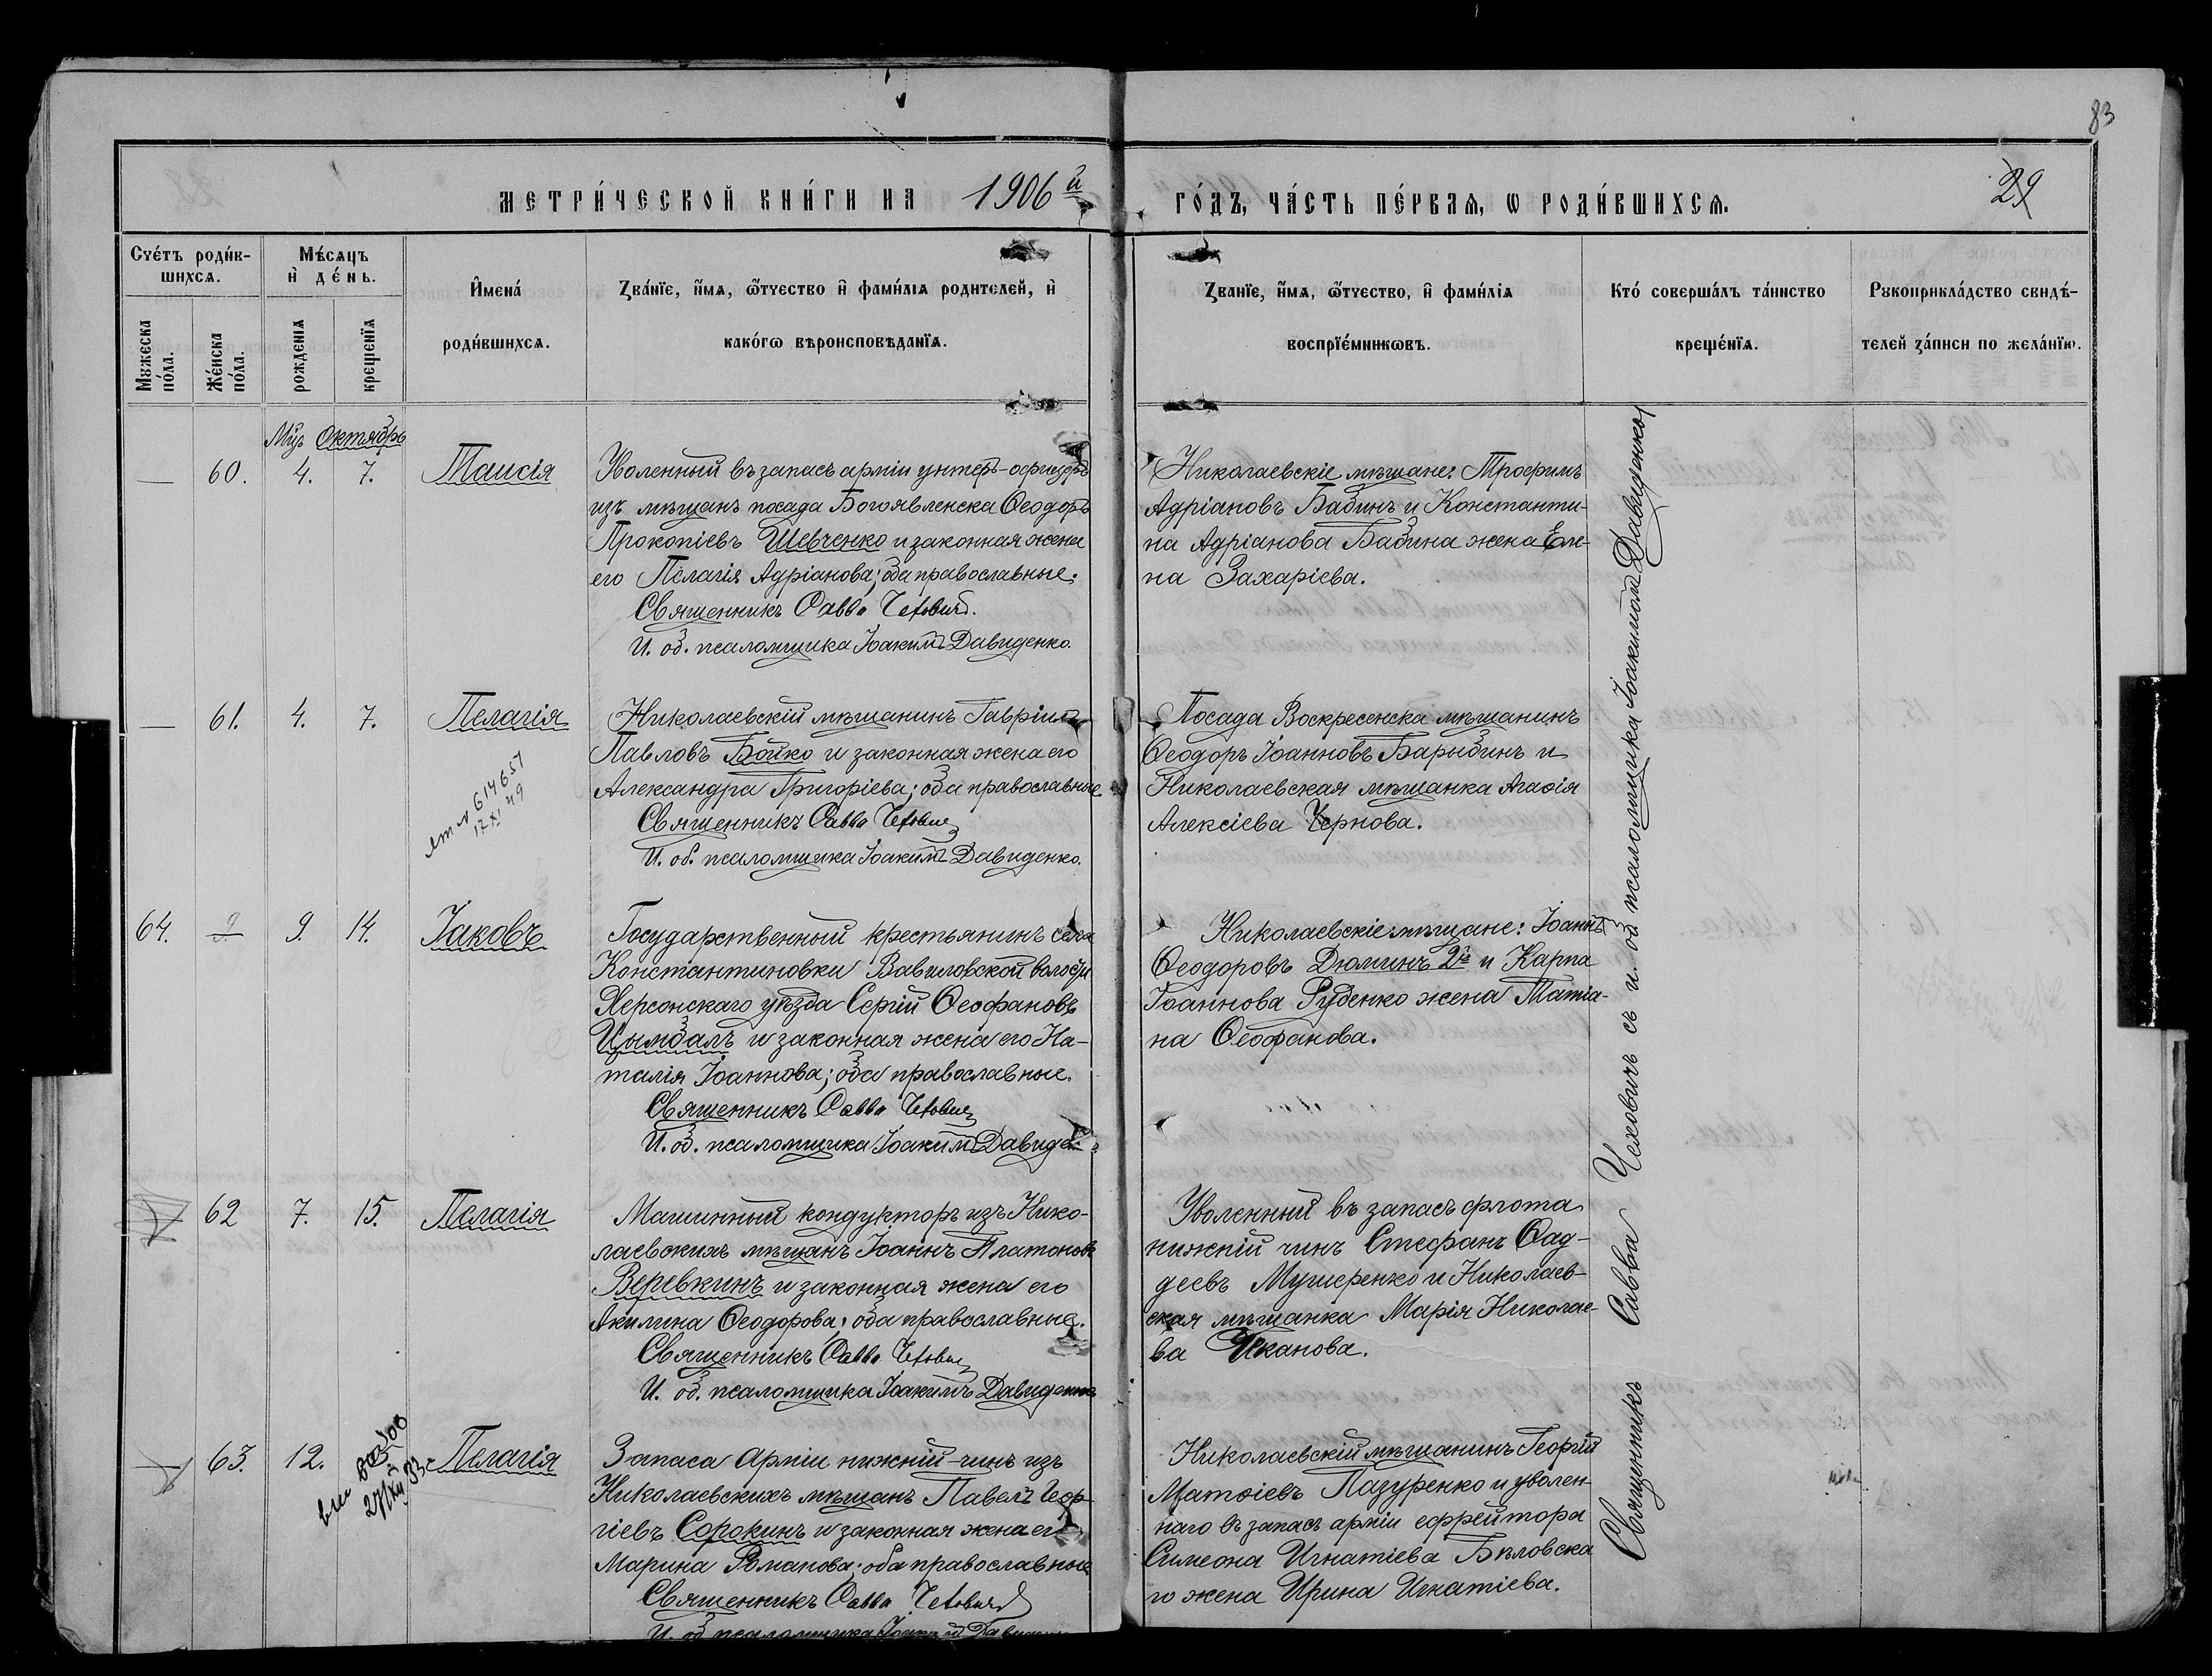 83
МЕТРИ́ЧЕСКОЙ КНИ́ГИ НА 1906й ГО́ДЪ, ЧА́СТЬ ПЕ́РВАЯ, Ѡ РОДИ́ВШИХСЯ.
29
Счетъ роди́в-
шихсѧ.
Мѣсѧцъ
и де́нь.
Имена́
роди́вшихсѧ.
Зва́нїе, и́мѧ, ѻ́тчество и фами́лїѧ родителей, и
како́гѡ вѣроисповѣданїѧ.
Званїе, и́мѧ, ѻ́тчество, и фами́лїѧ
воспрїе́мникѡвъ.
Кто́ соверша́лъ та́инство
креще́нїѧ.
Рꙋкоприкла́дство свидѣ́-
телей за́писи по жела́нїю.
Мꙋжеска
по́ла.
Же́нска
по́ла.
рожденїѧ
крещенїѧ
Мцъ Октябрь
— 60. 4. 7. Таисія
Уволенный въ запасъ арміи унтеръ-офицеръ
изъ мѣщанъ посада Богоявленска Ѳеодоръ
Прокопіевъ Шевченко и законная жена
его Пелагія Адріанова; оба православные.
Священникъ Савва Чеховичъ.
И. об. псаломщика Іоакимъ Давиденко.
Николаевскіе мѣщане: Трофимъ
Адріановъ Бабинъ и Константи-
на Адріанова Бабина жена Еле-
на Захаріева.
— 61. 4. 7. Пелагія
614651
17 XI 49
Николаевскій мѣщанинъ Гавріилъ
Павловъ Бойко и законная жена его
Александра Григоріева; оба православные.
Священникъ Савва Чеховичъ
И. об. псаломщика Іоакимъ Давиденко.
Посада Воскресенска мѣщанинъ
Ѳеодоръ Іоанновъ Барыбинъ и
Николаевская мѣщанка Агаѳія
Алексіева Чернова.
64. — 9. 14. Іаковъ
Государственный крестьянинъ села
Константиновки Вавиловской волости
Херсонскаго уѣзда Сергій Ѳеофановъ
Цымбалъ и законная жена его На-
талія Іоаннова; оба православные.
Священникъ Савва Чеховичъ
И. об. псаломщика Іоакимъ Давиденко
Николаевскіе мѣщане: Іоаннъ
Ѳеодоровъ Дюминъ 2й и Карпа
Іоаннова Руденко жена Татіа-
на Ѳеофанова.
— 62 7. 15. Пелагія
Машинный кондукторъ изъ Нико-
лаевскихъ мѣщанъ Іоаннъ Платоновъ
Веревкинъ и законная жена его
Акилина Ѳеодорова; оба православные.
Священникъ Савва Чеховичъ
И. об. псаломщика Іоакимъ Давиденко
Уволенный въ запасъ флота
нижній чинъ Стефанъ Ѳад-
деевъ и Николаев-
ская мѣщанка Марія Николае-
ва
— 63. 12. Пелагія
27/XII 33
Запаса Арміи нижній чинъ изъ
Николаевскихъ мѣщанъ Павелъ Геор-
гіевъ Сорокинъ и законная жена его
Марина Романова; оба православные
Священникъ Савва Чеховичъ
И. об. псаломщика Іоакимъ Давиденко
Николаевскій мѣщанинъ Георгій
Матѳіевъ Пазуренко и уволен-
наго въ запасъ арміи ефрейтора
Симеона Игнатіева Бѣловска
го жена Ирина Игнатіева.
Священникъ Савва Чеховичъ съ и. об. псаломщика Іоакимомъ Давиденко